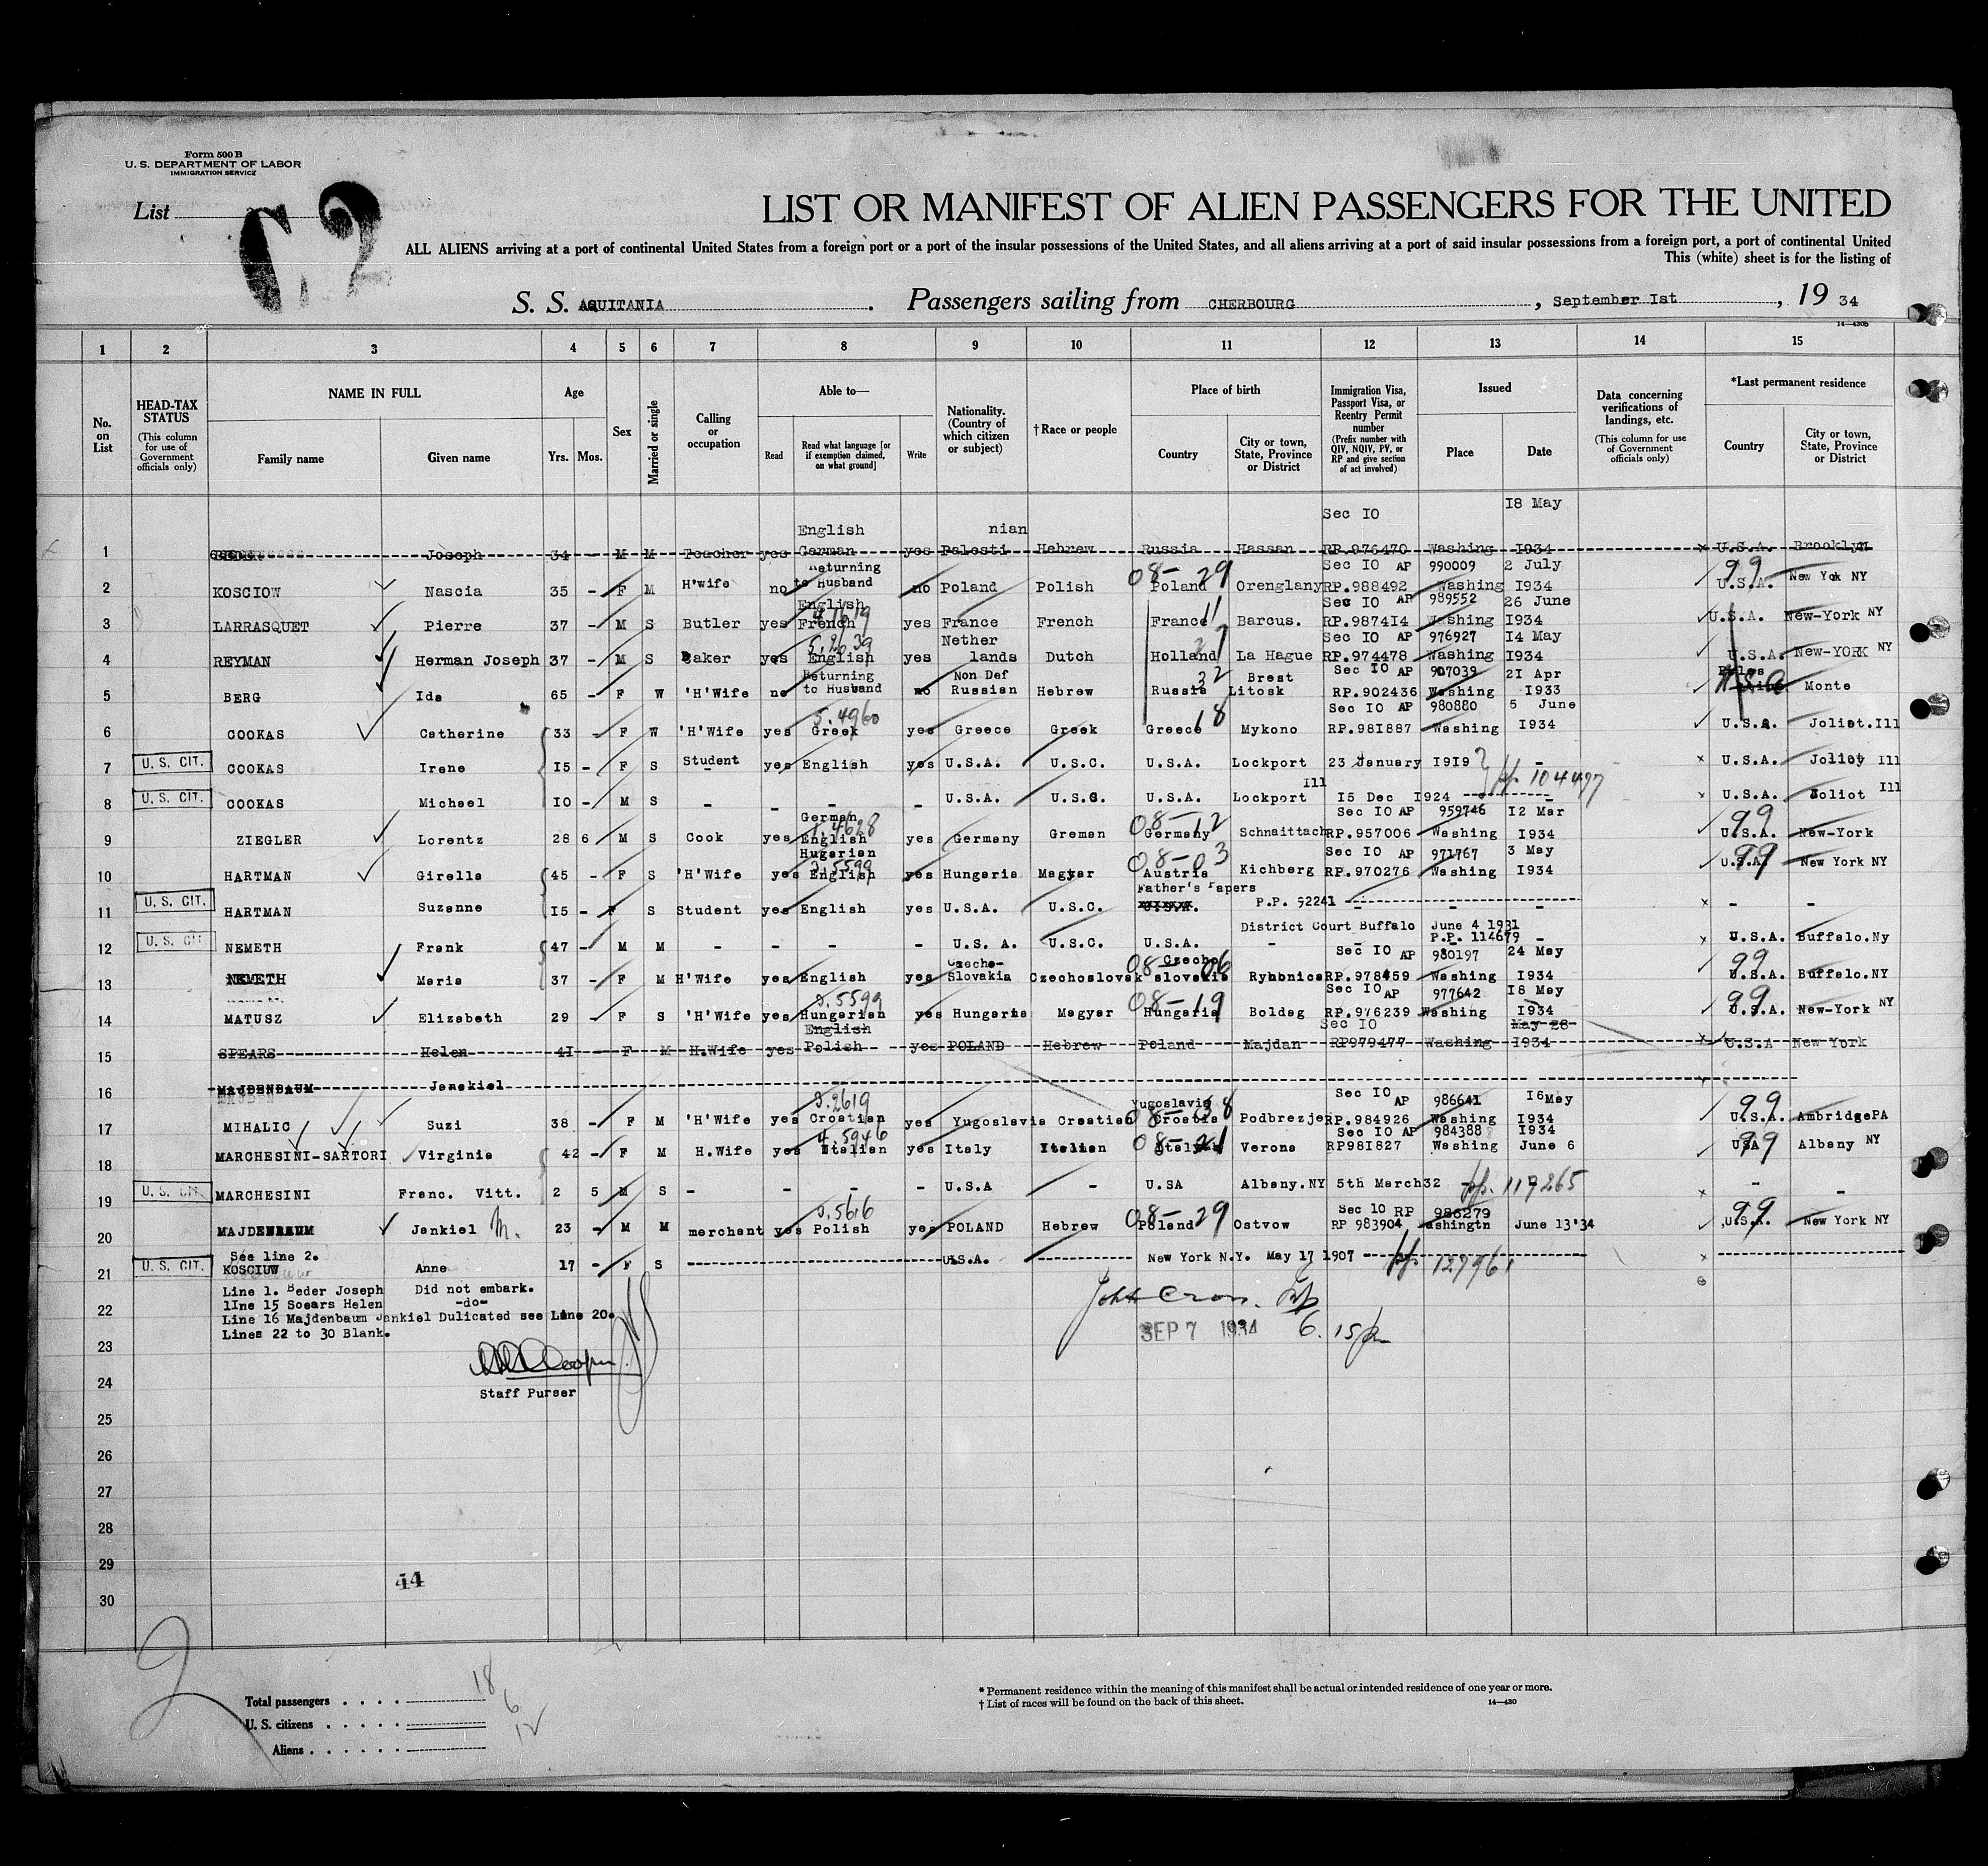 Form 500 B
U. S. DEPARTMENT OF LABOR
IMMIGRATION SERVICE
List
LIST OR MANIFEST OF ALIEN PASSENGERS FOR THE UNITED
ALL ALIENS arriving at a port of continental United States from a foreign port or a port of the insular possessions of the United States, and all aliens arriving at a port of said insular possessions from a foreign port, a port of continental United
This (white) sheet is for the listing of
S. S. AQUITANIA . Passengers sailing from CHERBOURG , September Ist , 19 34
14—430b
1 2 3 4 5 6 7 8 9 10 11 12 13 14 15
No. on List
HEAD-TAX STATUS
(This column for use of Government officials only)
NAME IN FULL
Family name Given name
Age
Yrs. Mos.
Sex
Married or single
Calling or occupation
Able to—
Read Read what language [or if exemption claimed, on what ground] Write
Nationality. (Country of which citizen or subject)
†Race or people
Place of birth
Country City or town, State, Province or District
Immigration Visa, Passport Visa, or Reentry Permit number
(Prefix number with QIV, NQIV, PV, or RP and give section of act involved)
Issued
Place Date
Data concerning verifications of landings, etc.
(This column for use of Government officials only)
*Last permanent residence
Country City or town, State, Province or District
English nian Sec IO I8 May
1 Joseph 34 - M M Teacher yes German yes Palesti Hebrew Russia Hassan RP.976470 Washing I934 x U.S.A. Brooklyn
Returning 08-29 Sec IO AP 990009 2 July 99
2 KOSCIOW Nascia 35 - F M H'wife no to Husband no Poland Polish Poland Orenglany RP.988492 Washing I934 U.S.A. New Yok NY
English 11 Sec IO AP 989552 26 June
3 LARRASQUET Pierre 37 - M S Butler yes French yes France French France Barcus. RP.9874I4 Washing I934 U.S.A. New-York NY
Nether Sec IO AP 976927 I4 May
4 REYMAN Herman Joseph 37 - M S Baker yes English yes lands Dutch Holland La Hague RP.974478 Washing I934 U.S.A. New-YORK NY
Returning Non Def 32 Brest Sec IO AP 907039 2I Apr
5 BERG Ida 65 - F W 'H'Wife no to Husband no Russian Hebrew Russia Litosk RP.902436 Washing I933 Monte
5.4960 18 Sec IO AP 980880 5 June
6 COOKAS Catherine 33 - F W 'H'Wife yes Greek yes Greece Greek Greece Mykono RP.98I887 Washing I934 U.S.A. Joliet.Ill
7 U. S. CIT. COOKAS Irene I5 - F S Student yes English yes U.S.A. U.S.C. U.S.A. Lockport 23 January I9I9 - x U.S.A. Joliet Ill
Ill pp. 104497
8 U. S. CIT. COOKAS Michael IO - M S - - - - U.S.A. U.S.C. U.S.A. Lockport I5 Dec I924 - x U.S.A. Joliot Ill
German 08-12 Sec IO AP 959746 I2 Mar 99
9 ZIEGLER Lorentz 28 6 M S Cook yes English yes Germany Greman Germany Schnaittach RP.957006 Washing I934 U.S.A. New-York
Hugarian 08-03 Sec IO AP 971767 3 May 99
10 HARTMAN Girella 45 - F S 'H'Wife yes English yes Hungaria Magyar Austria Kichberg RP.970276 Washing I934 U.S.A. New York NY
Father's Papers
11 U. S. CIT. HARTMAN Suzanne I5 - F S Student yes English yes U.S.A. U.S.C. P.P. 52241 - - x - -
District Court Buffalo June 4 1931
P.P. 114679
12 U. S. CIT NEMETH Frank 47 - M M - - - - U.S. A. U.S.C. U.S.A. - - - - x U.S.A. Buffalo.Ny
Czecho- 08-06 Czecho Sec IO AP 980197 24 May 99
13 NEMETH Maria 37 - F M H'Wife yes English yes Slovakia Czechoslovak slovakia Ryhbnica RP.978459 Washing I934 U.S.A. Buffalo.NY
2.5599 08-19 Sec IO AP 977642 I8 May 99
14 MATUSZ Elizabeth 29 - F S 'H'Wife yes Hungarian yes Hungaria Magyar Hungaria Boldag RP.976239 Washing I934 U.S.A. New-York NY
English Sec IO May 28
15 SPEARS Helen 4I - F M H.Wife yes Polish yes POLAND Hebrew Poland Majdan RP979477 Washing I934 x U.S.A New York
16 MAJDENBAUM Jankiel
2.2619 Yugoslavia 08-38 Sec IO AP 986641 I6 May 99
17 MIHALIC Suzi 38 - F M 'H'Wife yes Croatian yes Yugoslavia Croatian Croatia Podbrezje RP.984926 Washing I934 U.S.A. Ambridge PA
4.5946 08-21 Sec IO AP 984388 I934 99
18 MARCHESINI-SARTORI Virginia 42 - F M H.Wife yes Italian yes Italy Italian Italy Verona RP98I827 Washing June 6 USA Albany NY
19 U. S. CIT. MARCHESINI Franc. Vitt. 2 5 M S - - - - U.S.A - U.SA Albany.NY 5th March32 pp. 119265 x - -
2.5616 08-29 Sec 10 RP 986279 99
20 MAJDENBAUM Jankiel M. 23 - M M merchant yes Polish yes POLAND Hebrew Poland Ostvow RP 983904 Washingtn June 13'34 U.S.A. New York NY
See line 2.
21 U. S. CIT. KOSCIUW Anne 17 - F S U.S.A. New York N.Y. May 17 1907 pp. 127961 x
Line 1. Beder Joseph Did not embark.
22 lIne 15 Soears Helen -do-
Line 16 Majdenbaum Jankiel Dulicated see Line 20.
Lines 22 to 30 Blank.
SEP 7 1934 6.15 p
23
Staff Purser
24
25
26
27
28
29
44
30
2
Total passengers . . . . 18
U. S. citizens . . . . . 6
Aliens . . . . . . 12
* Permanent residence within the meaning of this manifest shall be actual or intended residence of one year or more.
† List of races will be found on the back of this sheet. 14—430